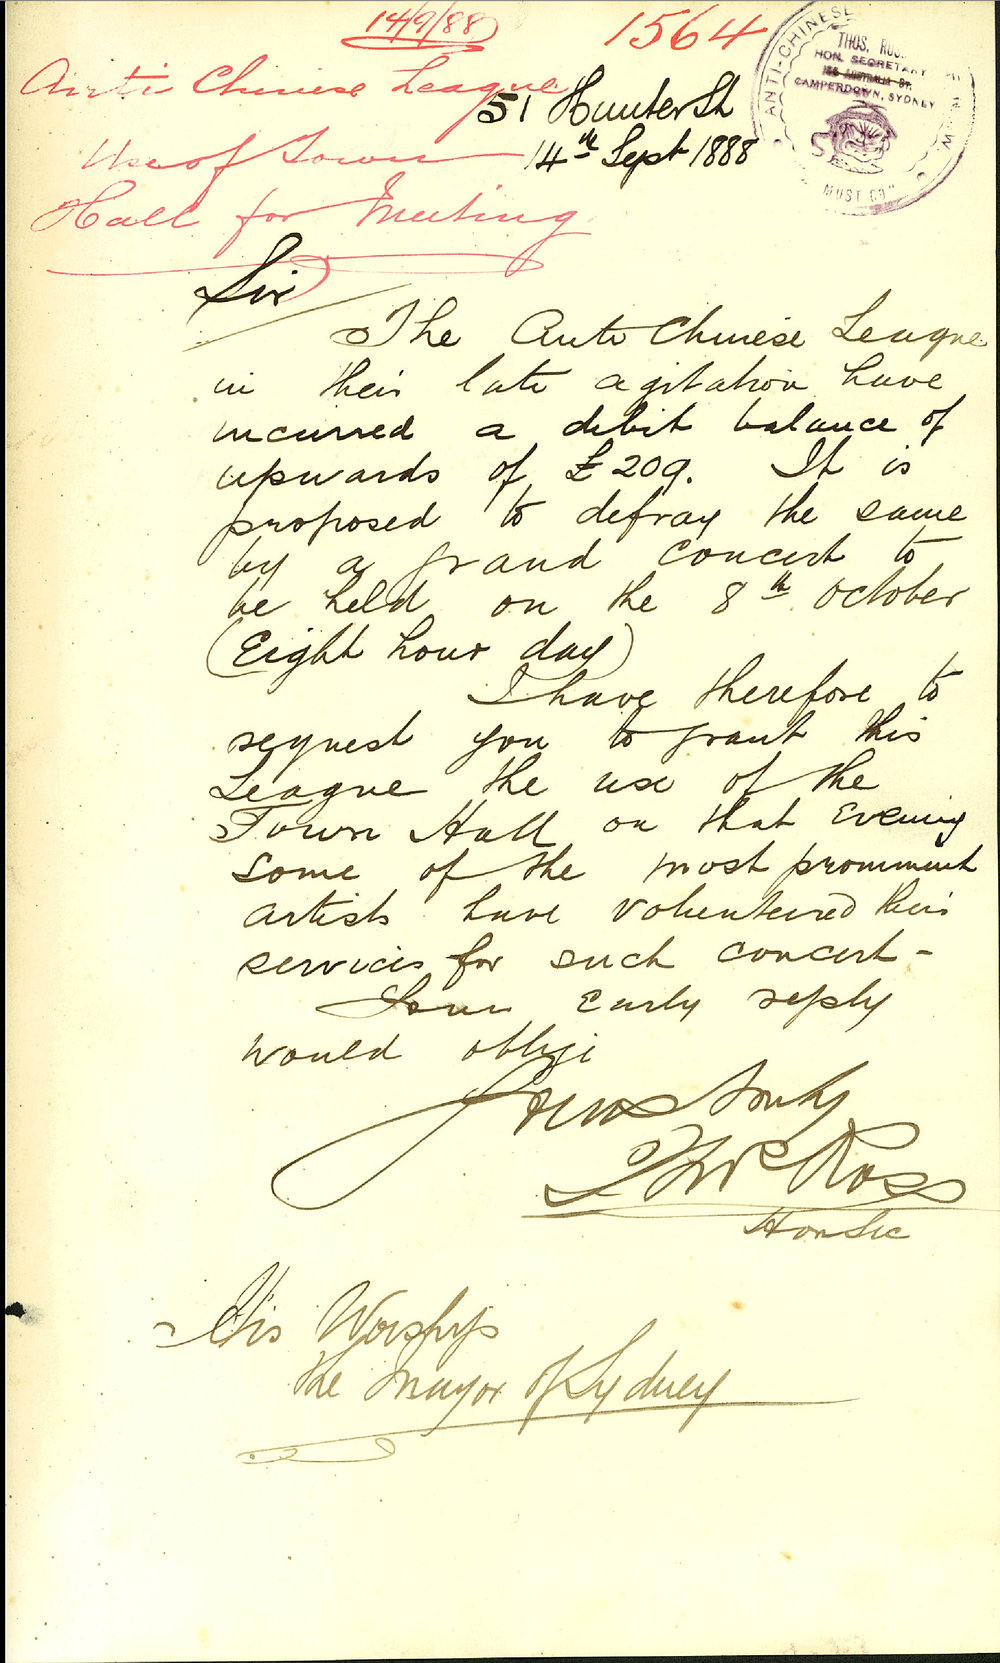 14/9/88
1564
Anti Chinese League
Use of Town
Hall for Meeting
ANTI-CHINESE
THOS.
HON. SECRETARY
AUSTRALIA ST.
CAMPERDOWN, SYDNEY
MUST GO"
51 Hunter St
14th Sept 1888
Sir
The Anti Chinese League
in their late agitation have
incurred a debit balance of
upwards of £209. It is
proposed to defray the same
by a grand concert to
be held on the 8th October
(Eight hour day)
I have therefore to
request you to grant this
League the use of the
Town Hall on that Evening
Some of the most prominent
artists have volunteered their
services for such concert -
Your Early reply
would oblige
Yours truly
Ross
Hon Sec
His Worship
The Mayor of Sydney